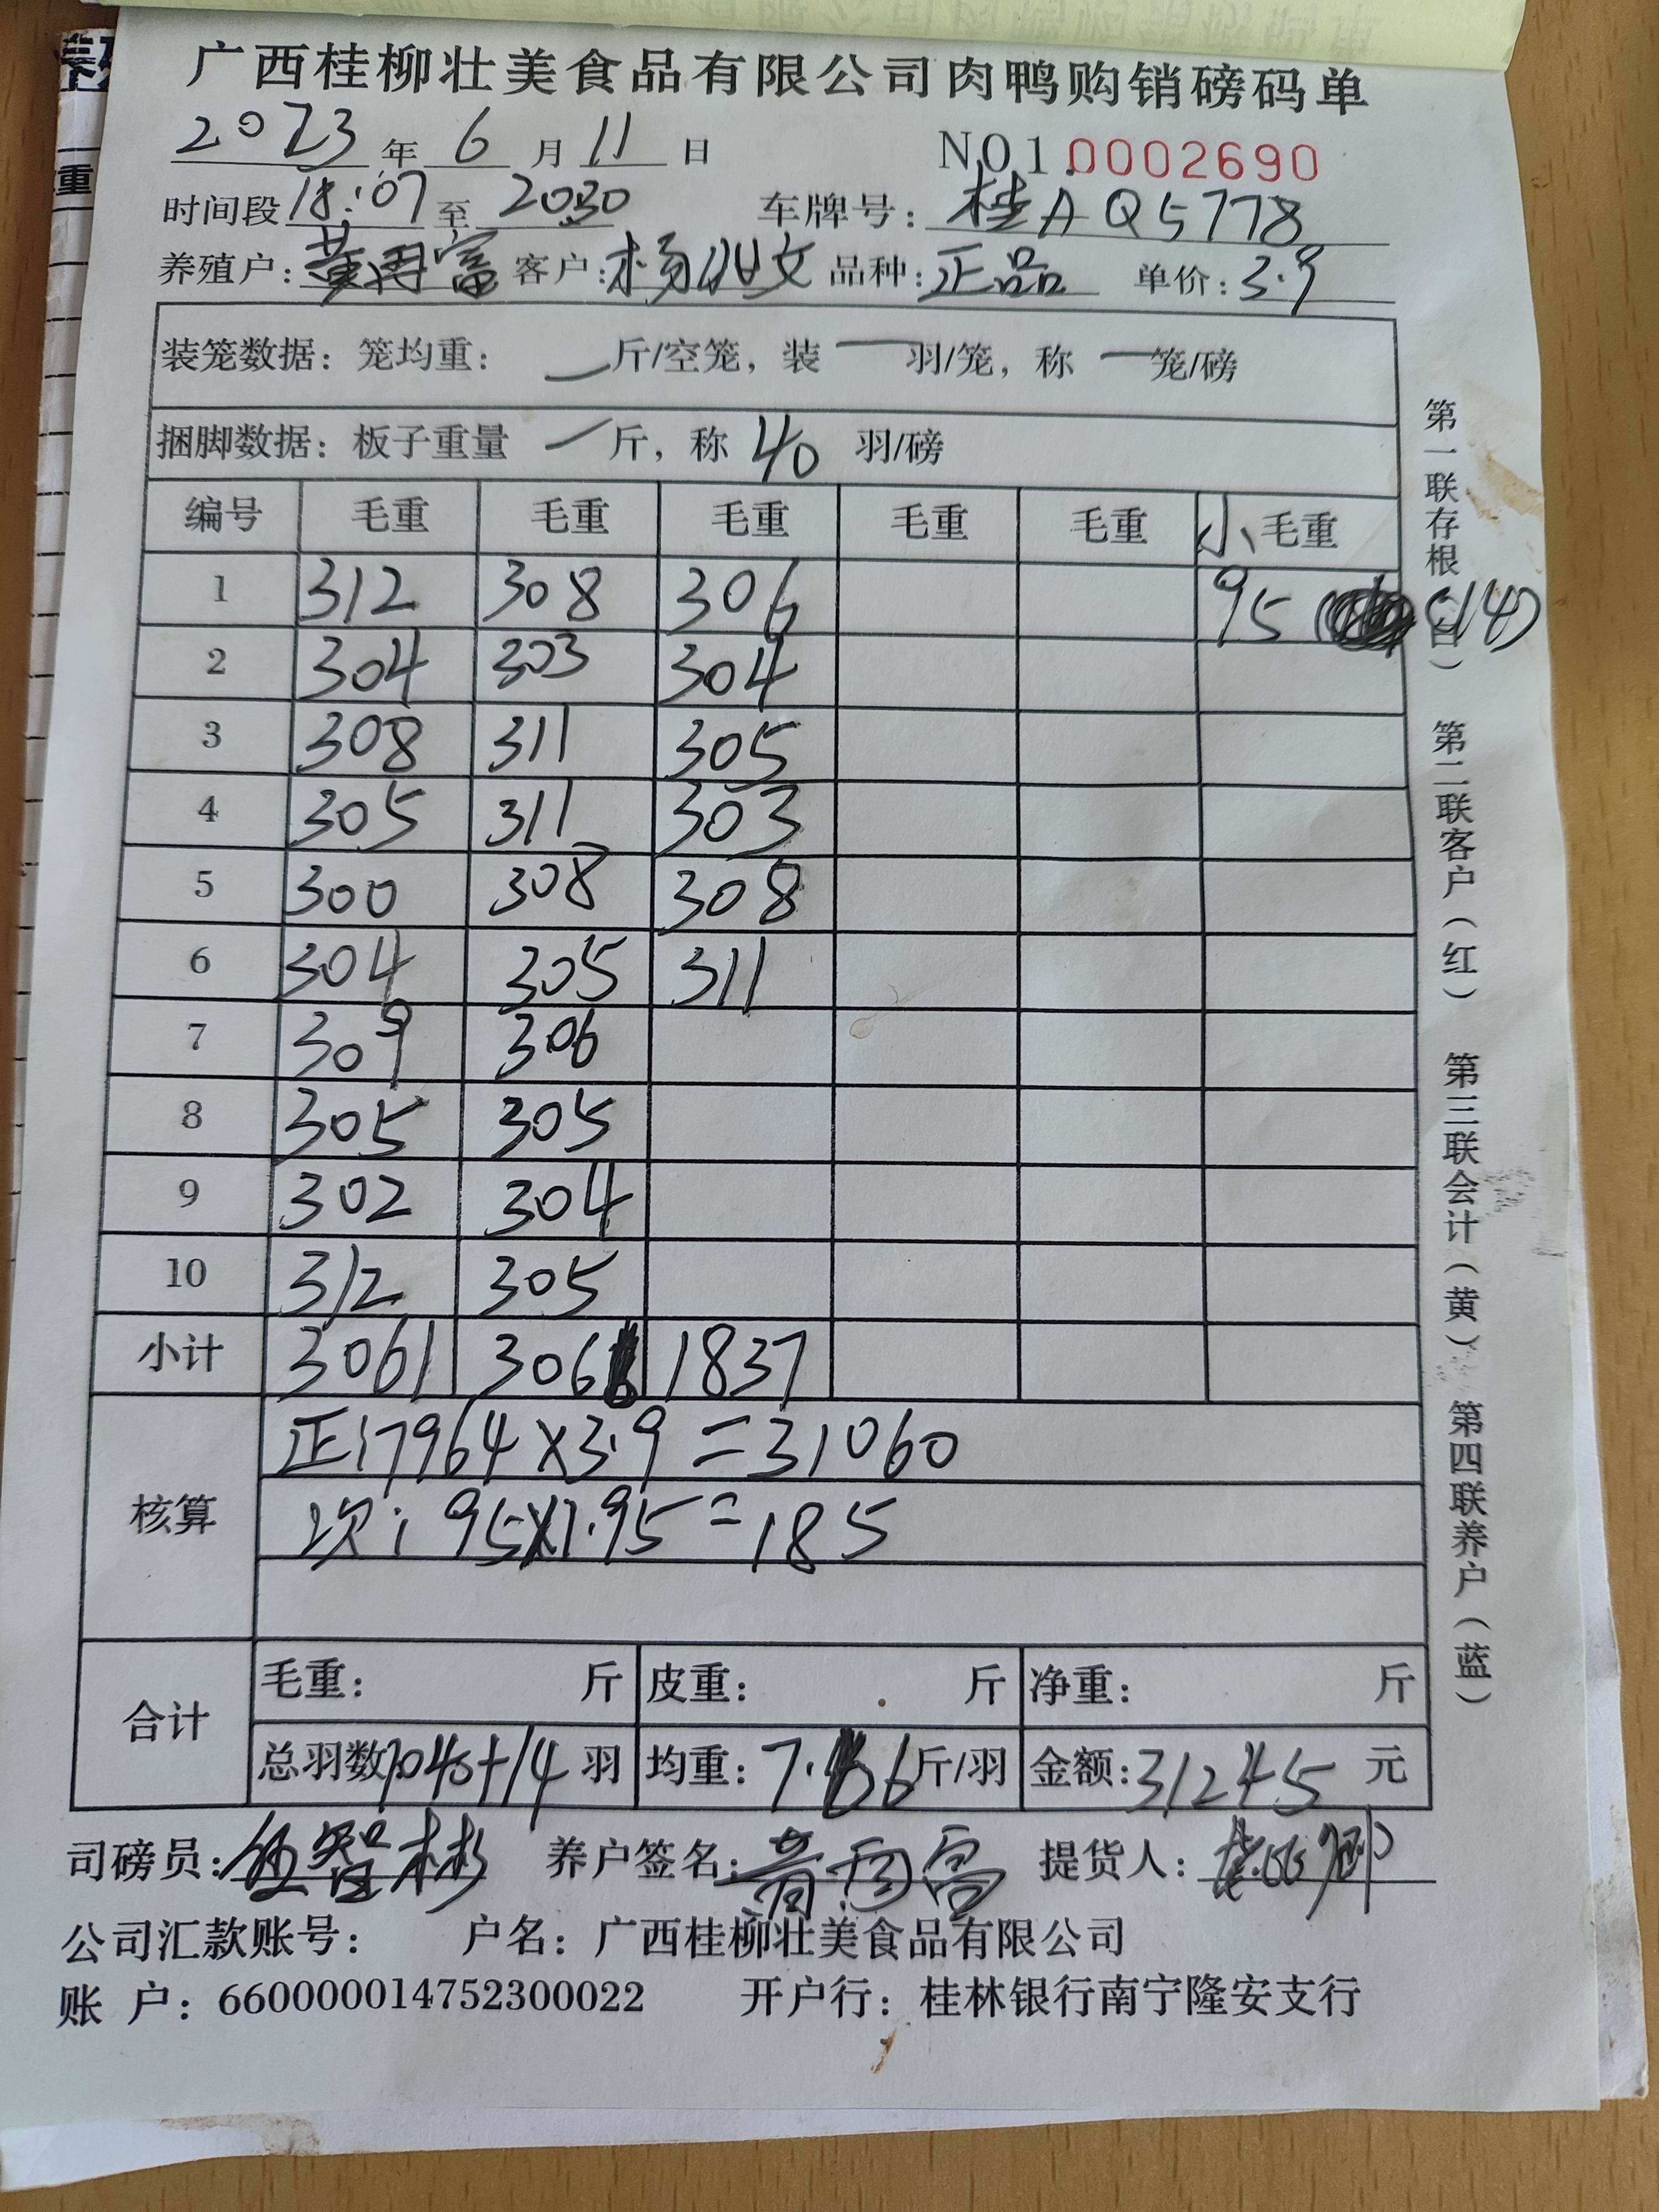 广西桂柳壮美食品有限公司肉鸭购销磅码单
2023年 6 月 11 日 NO1.0002690
时间段18:07至 2030 车牌号：桂AQ5778
养殖户：黄再富 客户：杨 文 品种：正品 单价：3.9
装笼数据：笼均重： — 斤/空笼，装 — 羽/笼，称 — 笼/磅
捆脚数据：板子重量 — 斤，称 40 羽/磅
编号 毛重 毛重 毛重 毛重 毛重 小毛重
1 312 308 306 95 (14)
2 304 303 304
3 308 311 305
4 305 311 303
5 300 308 308
6 304 305 311
7 309 306
8 305 305
9 302 304
10 312 305
小计 3061 306 1837
核算
正:7964×3.9=31060
次:95×1.95=185
合计
毛重： 斤 皮重： 斤 净重： 斤
总羽数1040+14羽 均重：7. 6斤/羽 金额：31245 元
司磅员：伍智彬 养户签名：黄再富 提货人：
公司汇款账号： 户名：广西桂柳壮美食品有限公司
账 户：660000014752300022 开户行：桂林银行南宁隆安支行
第一联存根（白） 第二联客户（红） 第三联会计（黄） 第四联养户（蓝）